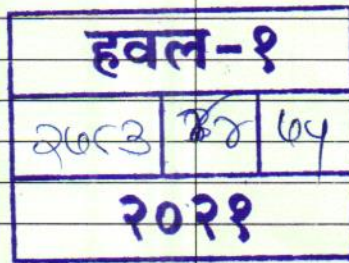 हवल-१
२७८३ ४४ ७५
२०२१